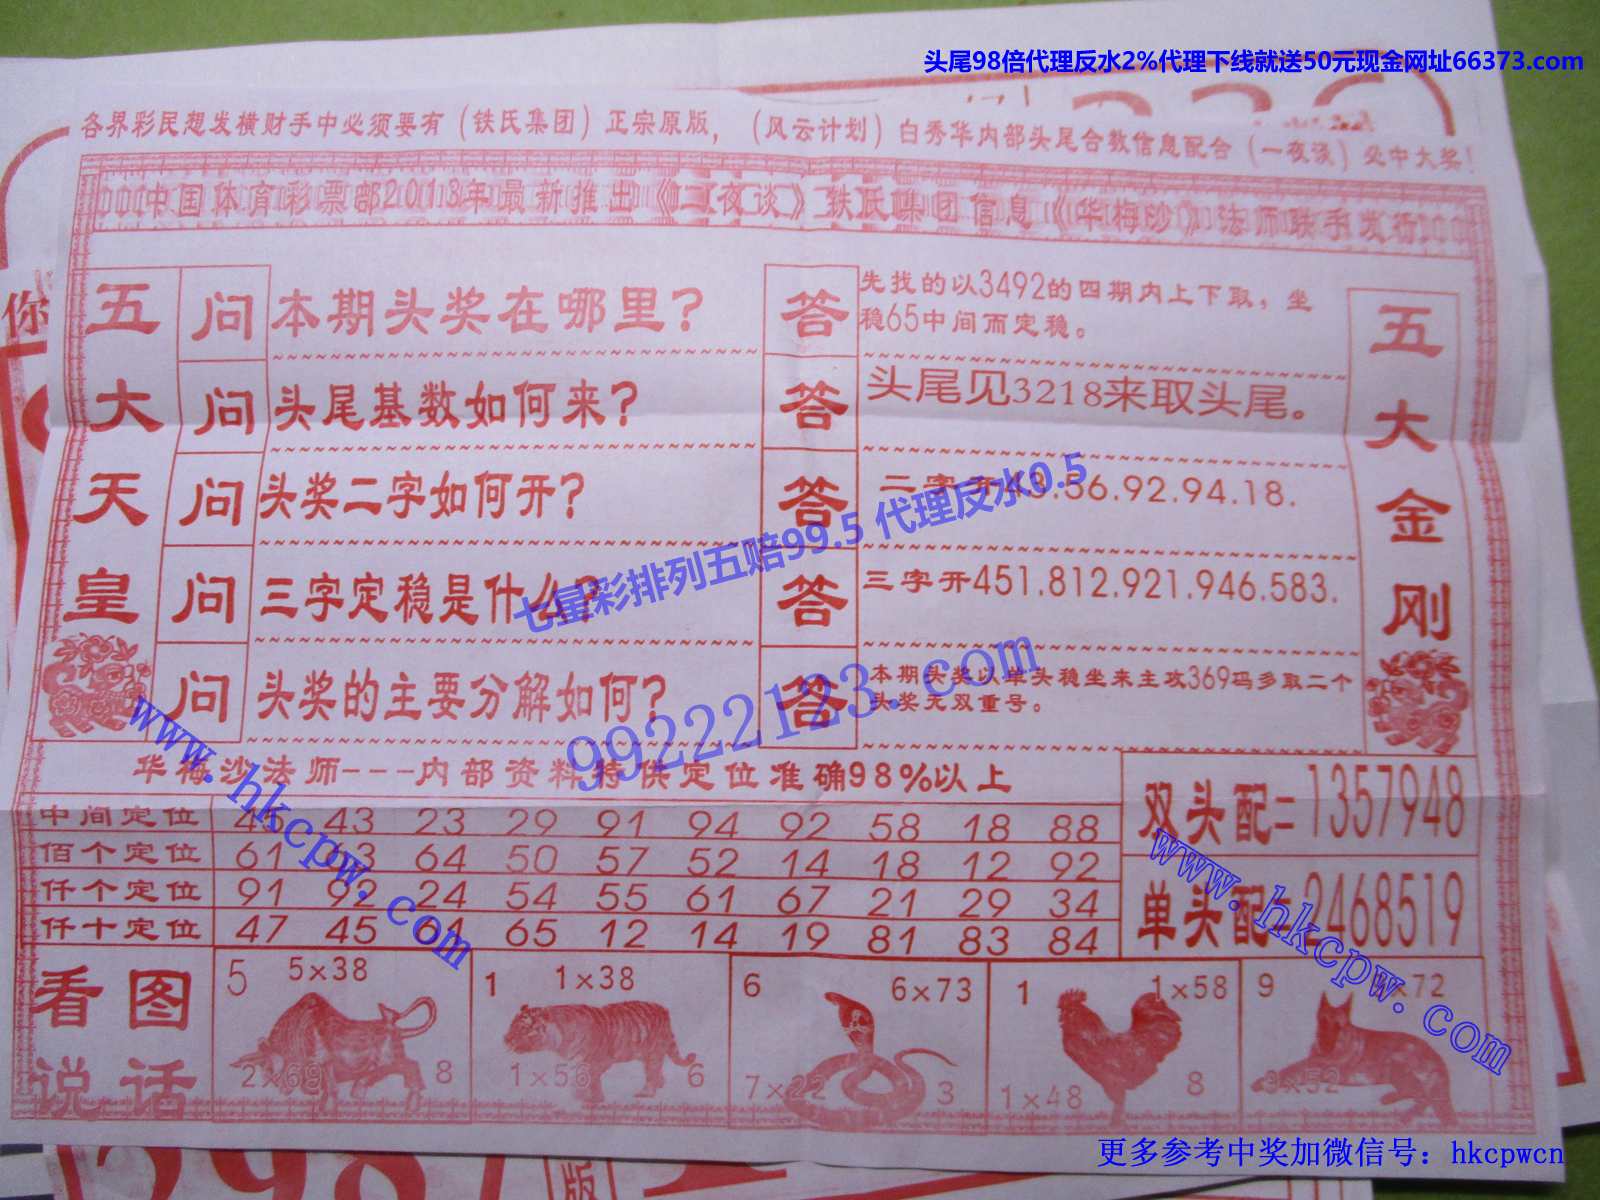 头尾98倍代理反水2%代理下线就送50元现金网址66373.com
各界彩民想发横财手中必须要有（铁氏集团）正宗原版，（风云计划）白秀华内部头尾合数信息配合（一夜谈）必中大奖！
中国体育彩票部2013年最新推出《二夜谈》铁氏集团信息《华梅沙》法师联手发行
你
五大天皇
问 本期头奖在哪里？
答 先找的以3492的四期内上下取，坐
稳65中间而定稳。
问 头尾基数如何来？
答 头尾见3218来取头尾。
问 头奖二字如何开？
答 二字开48.56.92.94.18.
问 三字定稳是什么？
答 三字开451.812.921.946.583.
问 头奖的主要分解如何？
答 本期头奖以单头稳坐来主攻369码多取二个
头奖无双重号。
五大金刚
七星彩排列五赔99.5 代理反水0.5
99222123.com
www.hkcpw.com
华梅沙法师---内部资料特供定位准确98%以上
中间定位 45 43 23 29 91 94 92 58 18 88
佰个定位 61 63 64 50 57 52 14 18 12 92
仟个定位 91 92 24 54 55 61 67 21 29 34
仟十定位 47 45 61 65 12 14 19 81 83 84
双头配=1357948
单头配=2468519
www.hkcpw.com
看图
说话
5 5×38
2×69 8
1 1×38
1×56 6
6 6×73
7×22 3
1 1×58
1×48 8
9 ×72
9×52
版
更多参考中奖加微信号：hkcpwcn